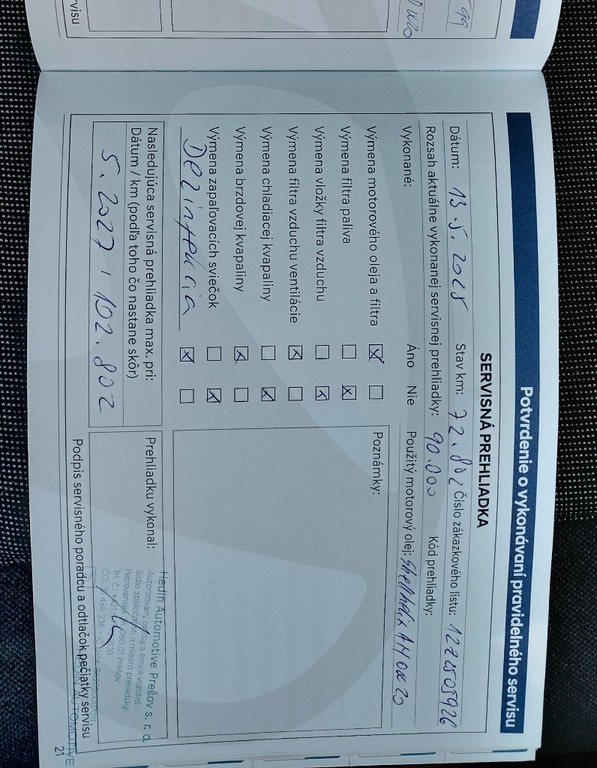 Potvrdenie o vykonávaní pravidelného servisu
SERVISNÁ PREHLIADKA
Dátum: 13. 5. 2025 Stav km: 72.802 Číslo zákazkového listu: 1221505926
Rozsah aktuálne vykonanej servisnej prehliadky: 90.000 Kód prehliadky:
Vykonané: Áno Nie Použitý motorový olej:
Výmena motorového oleja a filtra
Výmena filtra paliva
Výmena vložky filtra vzduchu
Výmena filtra vzduchu ventilácie
Výmena chladiacej kvapaliny
Výmena brzdovej kvapaliny
Výmena zapaľovacích sviečok
Dezinfekcia
Poznámky:
Nasledujúca servisná prehliadka max. pri:
Dátum / km (podľa toho čo nastane skôr)
5. 2027 / 102.802
Prehliadku vykonal:
Hedin Automotive Prešov s. r. o.
Podpis servisného poradcu a odtlačok pečiatky servisu
21